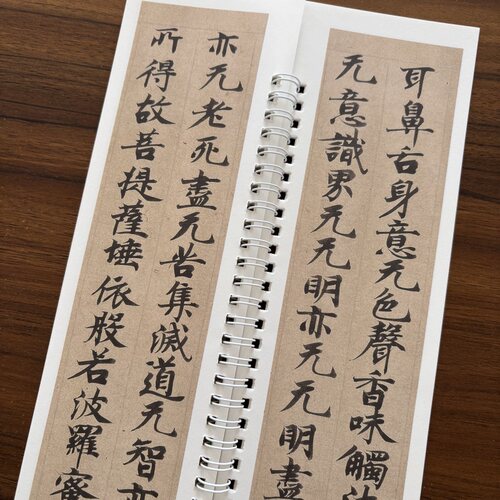 耳鼻舌身意无色聲香味觸
无意識界无无明亦无无明盡
亦无老死盡无苦集滅道无智亦
所得故菩提薩埵依般若波羅蜜